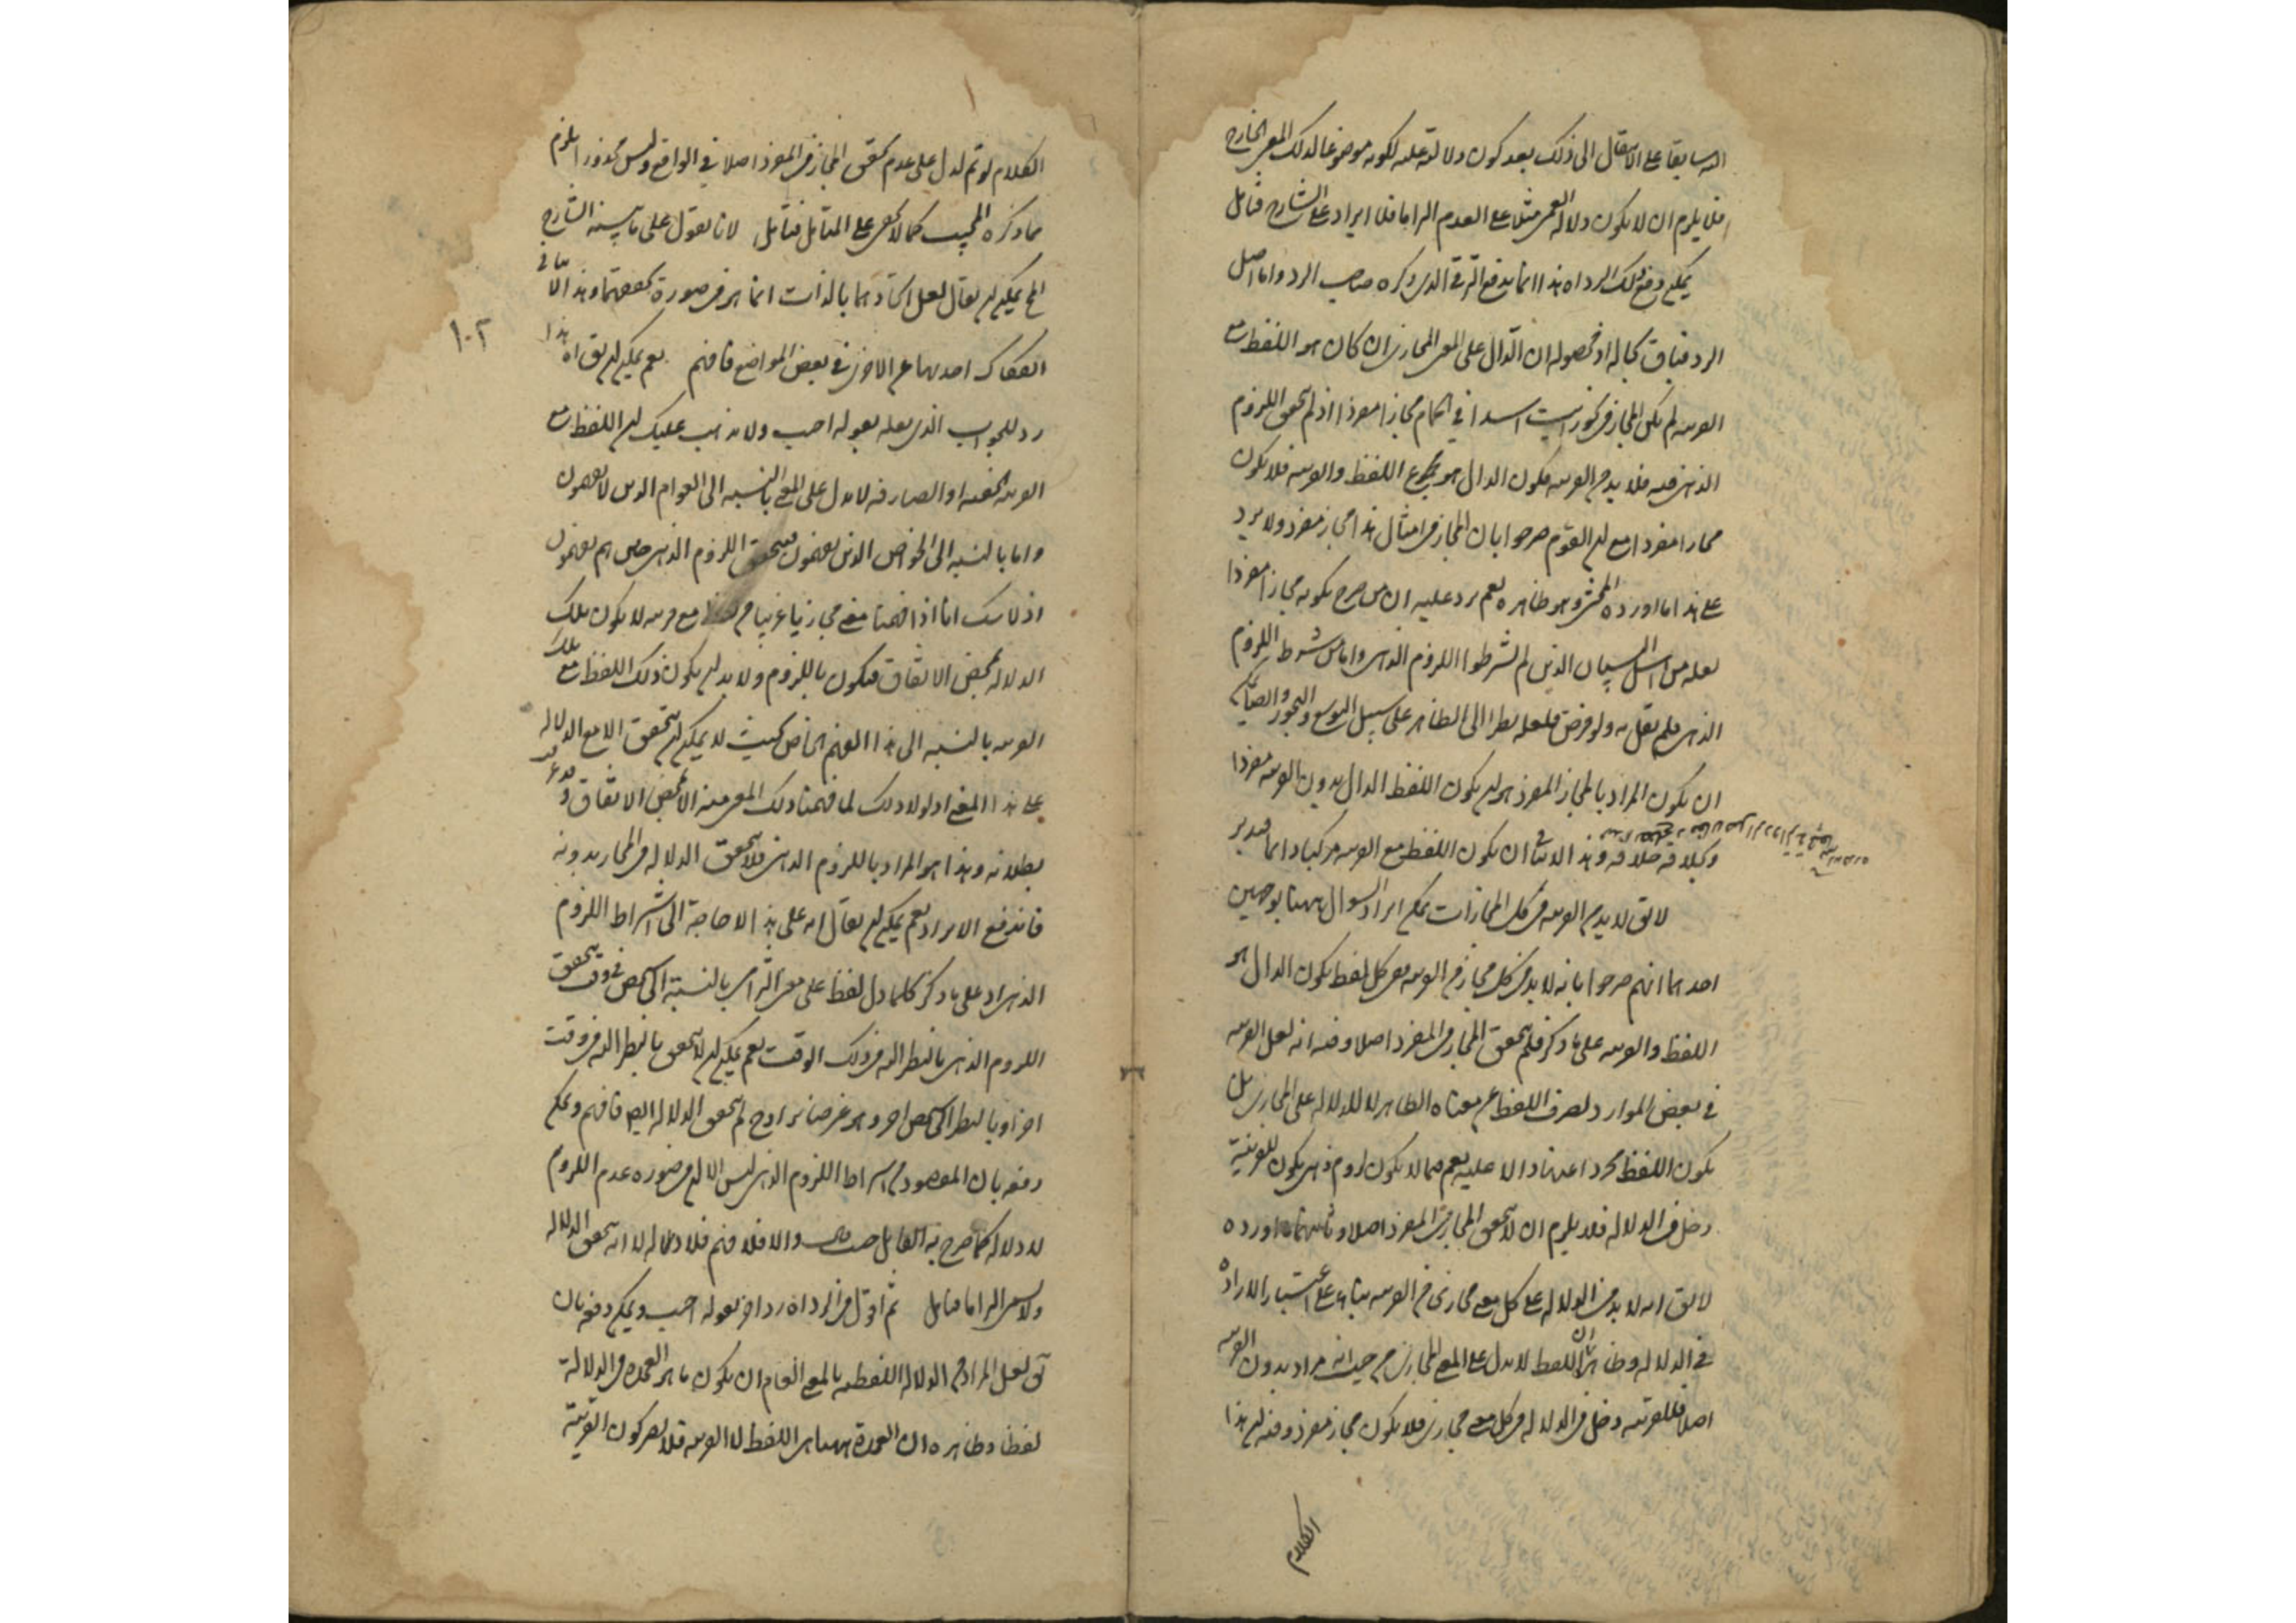 اليه سابقا على الانتقال الى ذلك بعد كون دلالته عليه لكونه موضوعا لذلك المعنى الخارج
فلا يلزم ان لا يكون دلالة العمى مثلا على العدم التزاما فلا ايراد على الشارح فتأمل
يمكن دفع ذلك الرد اه هذا انما يدفع الترقى الذى ذكره صاحب الرد واما اصل
الرد فباق بحاله اذ محصوله ان الدال على المعنى المجازى ان كان هو اللفظ مع
القرينة لم يكن المجاز فى نحو رايت اسدا فى الحمام مجازا مفردا اذ لم يتحقق اللزوم
الذهنى فيه فلا بد من القرينة فيكون الدال هو مجموع اللفظ والقرينة فلا يكون
مجازا مفردا مع ان القوم صرحوا بان المجاز فى امثال هذا مجاز مفرد ولا يرد
على هذا ما اورده المحشى وهو ظاهر نعم يرد عليه ان من صرح بكونه مجازا مفردا
لعله من اهل البيان الذين لم يشترطوا اللزوم الذهنى واما من شرط اللزوم
الذهنى فلم يقل به ولو فرض فلعله نظرا الى الظاهر على سبيل التوسع والتجوز
ان يكون المراد بالمجاز المفرد هو ان يكون اللفظ الدال بدون القرينة مفردا
وبخلافه خلافه وهذا لا ينافى ان يكون اللفظ مع القرينة مركبا دائما فتدبر
لا يق لا بد من القرينة فى كل المجازات يمكن ايراد السؤال ههنا بوجهين
احدهما انهم صرحوا بانه لا بد فى كل مجاز من القرينة ففى كل لفظ يكون الدال هو
اللفظ والقرينة على ما ذكر فلم يتحقق المجاز فى المفرد اصلا وفيه انه لعل القرينة
فى بعض الموارد لصرف اللفظ عن معناه الظاهر لا للدلالة على المجازى بل
يكون اللفظ مجردا عنها دالا عليه نعم فيما لا يكون لزوم ذهنى يكون للقرينة
دخل فى الدلالة فلا يلزم ان لا يتحقق المجاز فى المفرد اصلا وثانيهما ما اورده
لا يق انه لا بد فى الدلالة على كل معنى مجازى من القرينة بناء على اعتبار الارادة
فى الدلالة وظاهر ان اللفظ لا يدل على المعنى المجازى من حيث انه مراد بدون القرينة
اصلا فللقرينة دخل فى الدلالة فى كل معنى مجازى فلا يكون مجاز مفرد وفيه ان هذا
الكلام
الكلام لو تم لدل على عدم تحقق المجاز فى المفرد اصلا فى الواقع وليس محذورا يلزم
مما ذكره المجيب كما لا يخفى على المتامل فتامل لانا نقول على ما بينه الشارح
الخ يمكن ان يقال لعل اتحادهما بالذات انما هو فى صورة تحققهما وهذا لا ينافى
انفكاك احدهما عن الاخر فى بعض المواضع فافهم نعم يمكن ان يق اه هذا
رد للجواب الذى نقله بقوله اجيب ولا يذهب عليك ان اللفظ مع
القرينة الخفية او الصارفة لا يدل على المعنى بالنسبة الى العوام الذين لا يفهمون
واما بالنسبة الى الخواص الذين يفهمون فيتحقق اللزوم الذهنى حين هم يفهمون
اذ لا شك انا اذا فهمنا معنى مجازيا غريبا من لفظ مع قرينة لا يكون تلك
الدلالة بمحض الاتفاق فيكون باللزوم ولا بد ان يكون ذلك اللفظ مع تلك
القرينة بالنسبة الى هذا الفهم الخاص بحيث لا يمكن ان يتحقق الا مع الدلالة
على هذا المعنى اذ لولا ذلك لما فهمنا ذلك المعنى منه الا بمحض الاتفاق وقد عرفت
بطلانه وهذا هو المراد باللزوم الذهنى فلا يتحقق الدلالة فى المجاز بدونه
فاندفع الايراد نعم يمكن ان يقال انه على هذا لا حاجة الى اشتراط اللزوم
الذهنى اذ على ما ذكر كلما دل لفظ على معنى التزامى بالنسبة الى شخص فى وقت يتحقق
اللزوم الذهنى بالنظر اليه فى ذلك الوقت نعم يمكن ان لا يتحقق بالنظر اليه فى وقت
اخر او بالنظر الى شخص اخر وهو غير ضائر اذ ح لم يتحقق الدلالة ايضا فافهم ويمكن
دفعه بان المقصود من اشتراط اللزوم الذهنى ليس الا ان فى صورة عدم اللزوم
لا دلالة كما صرح به القائل حيث قال والا فلا فهم فلا دلالة لا انه يتحقق الدلالة
ولا يسمى التزاما فتامل ثم اقول فى الرد اه رد اخر لقوله اجيب ويمكن دفعه بان
يق لعل المراد من الدلالة اللفظية بالمعنى العام ان يكون ما هو العمدة فى الدلالة
لفظا وظاهره ان العمدة ههنا هو اللفظ لا القرينة فلا يضر كون القرينة
١٠٢